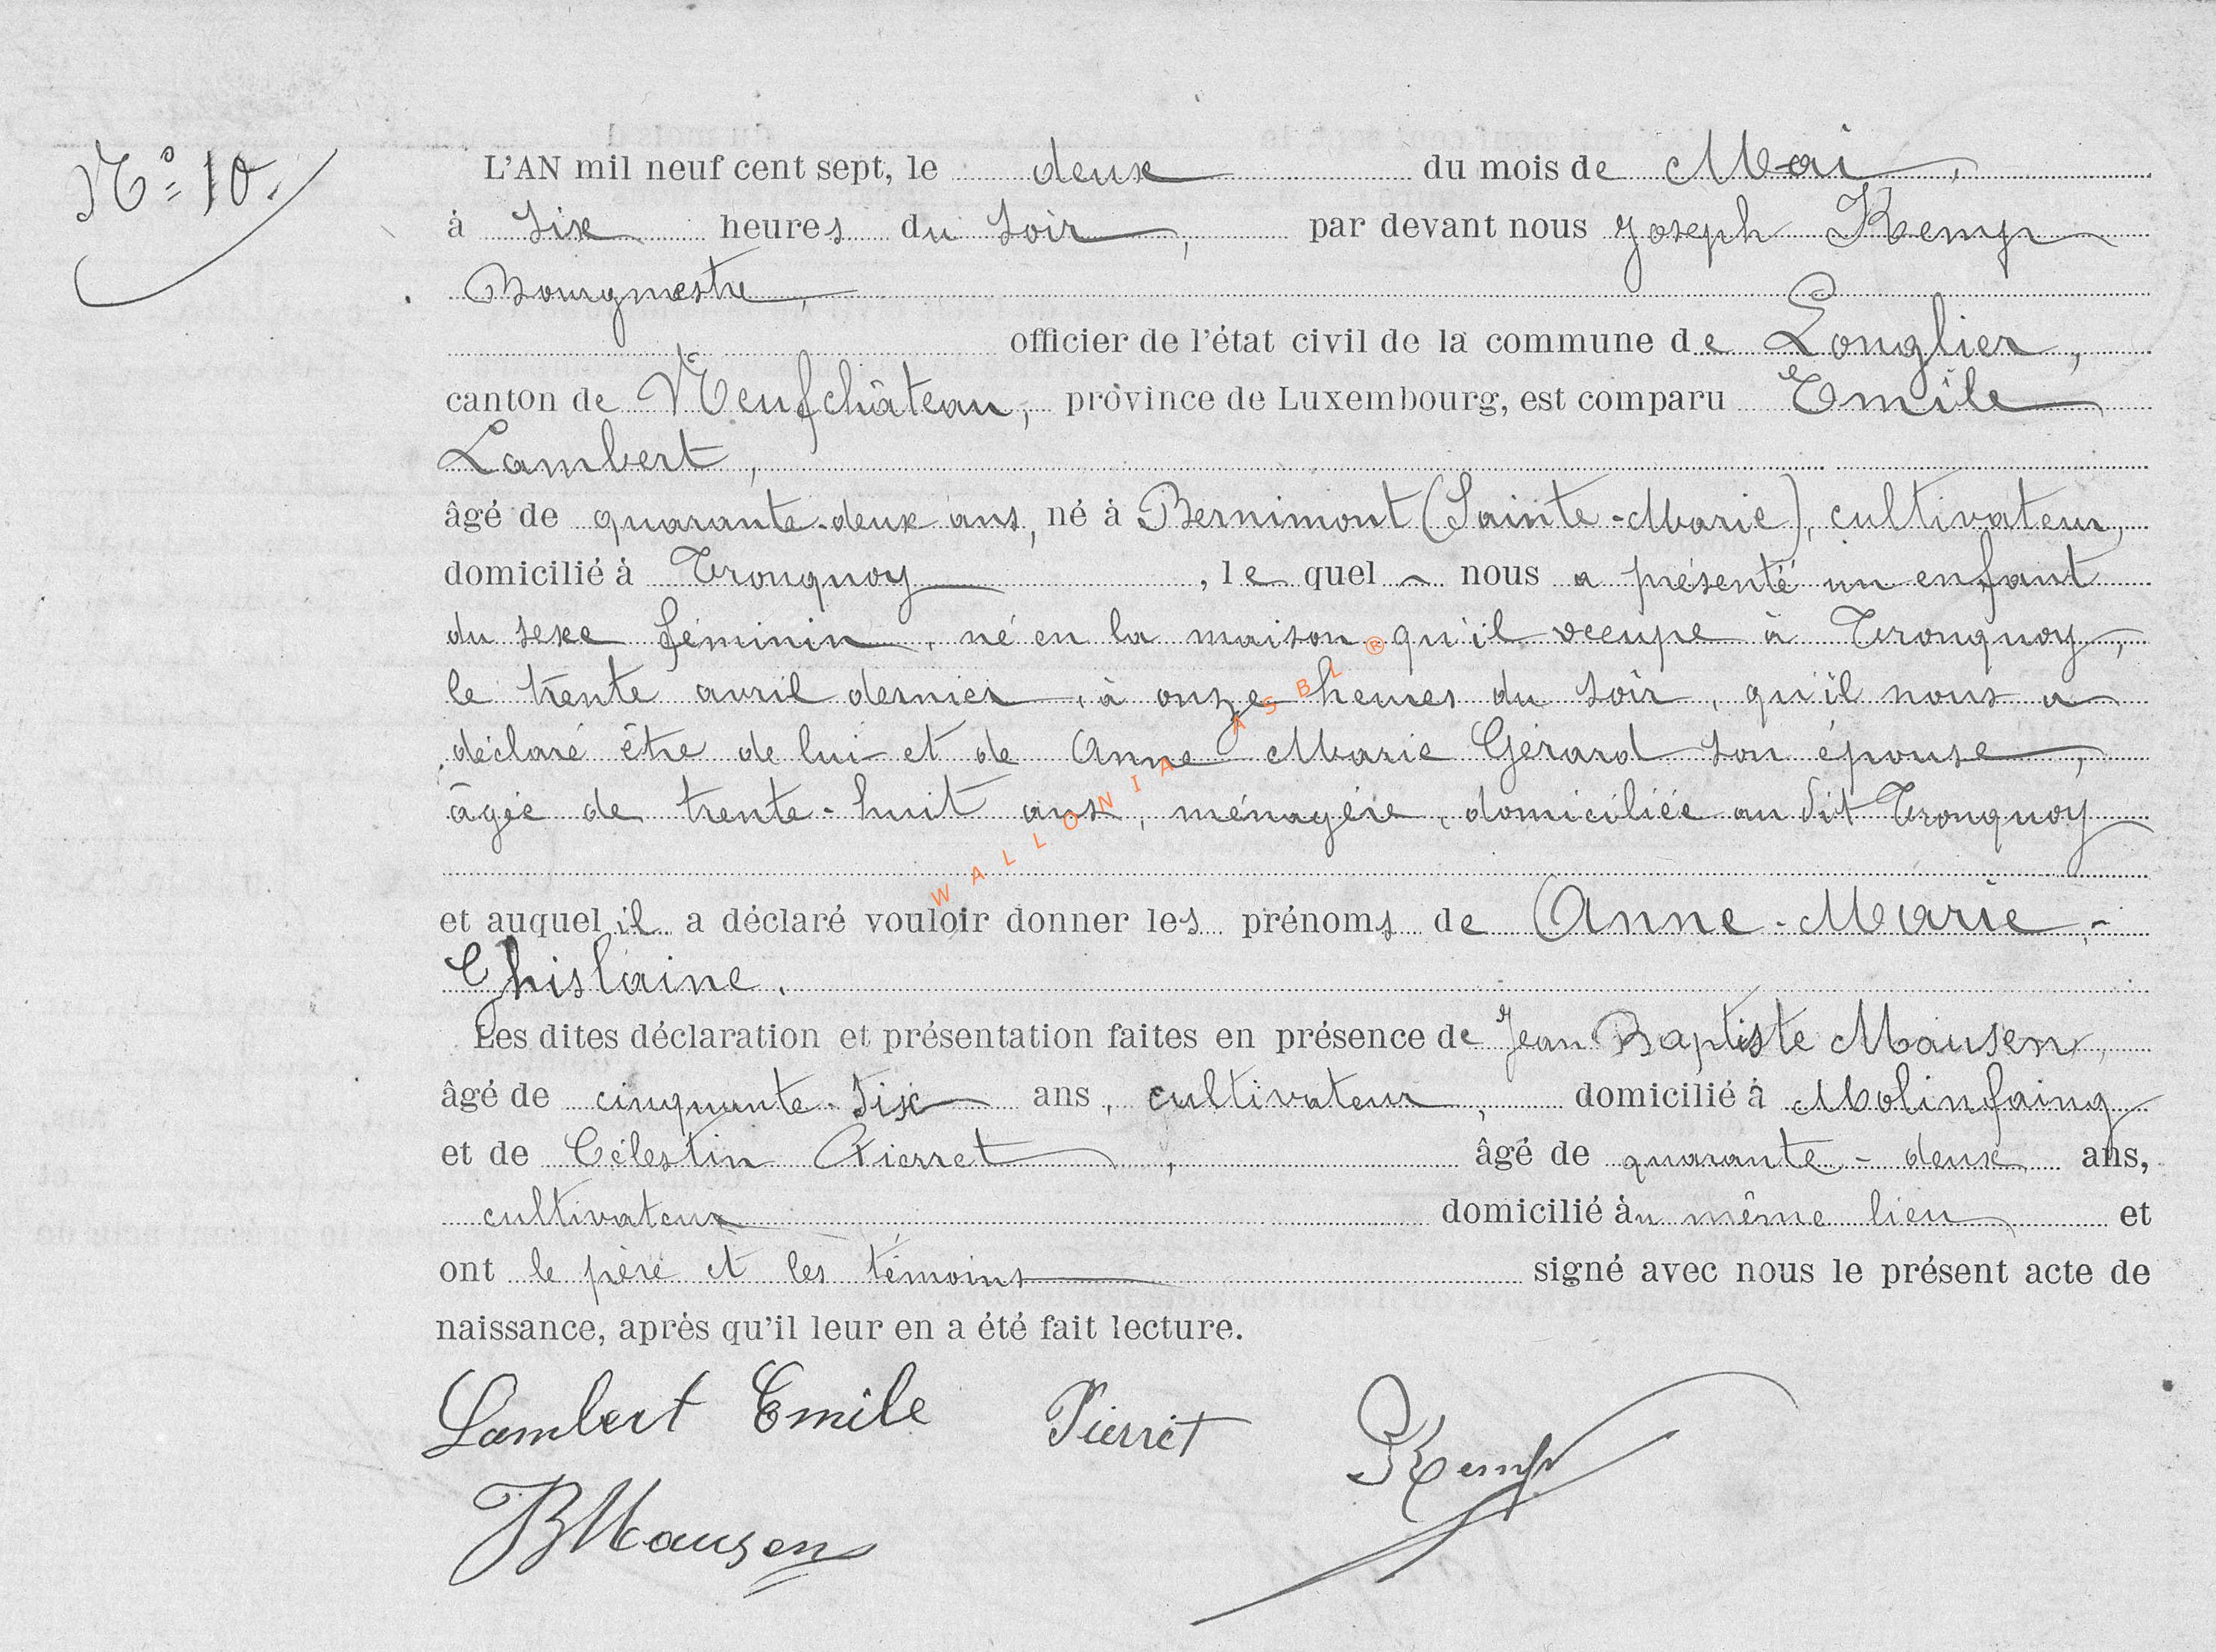 Nº 10.
L'AN mil neuf cent sept, le deux du mois de Mai,
à six heures du soir, par devant nous Joseph Kemp
Bourgmestre,
officier de l'état civil de la commune de Longlier,
canton de Neufchâteau, province de Luxembourg, est comparu Emile
Lambert,
âgé de quarante-deux ans, né à Bernimont (Sainte-Marie), cultivateur,
domicilié à Tronquoy, le quel nous a présenté un enfant
du sexe féminin, né en la maison qu'il occupe à Tronquoy,
le trente avril dernier, à onze heures du soir, qu'il nous a
déclaré être de lui et de Anne Marie Gérard son épouse,
âgée de trente-huit ans, ménagère, domiciliée au dit Tronquoy
et auquel il a déclaré vouloir donner les prénoms de Anne-Marie,-
Ghislaine.
Les dites déclaration et présentation faites en présence de Jean Baptiste Mausen,
âgé de cinquante-six ans, cultivateur, domicilié à Molinfaing
et de Célestin Pierret, âgé de quarante-deux ans,
cultivateur domicilié au même lieu et
ont le père et les témoins signé avec nous le présent acte de
naissance, après qu'il leur en a été fait lecture.
Lambert Emile Pierret JKemp
JBMausen
WALLONIA ASBL ®